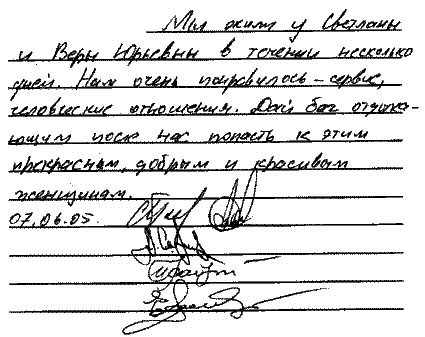 Мы жили у Светланы
и Веры Юрьевны в течении несколько
дней. Нам очень понравилось – сервис,
человеческие отношения. Дай бог отдыха-
ющим после нас попасть к этим
прекрасным, добрым и красивым
женщинам.
07.06.05.